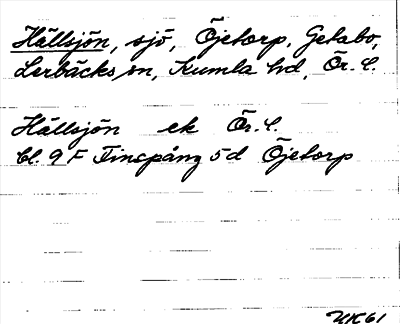 Hällsjön, sjö, Öjetorp, Getabo,
Lerbäcks sn, Kumla hd, Ör. l.
Hällsjön ek Ör. l.
bl. 9 F Finspång 5 d Öjetorp
UK 61